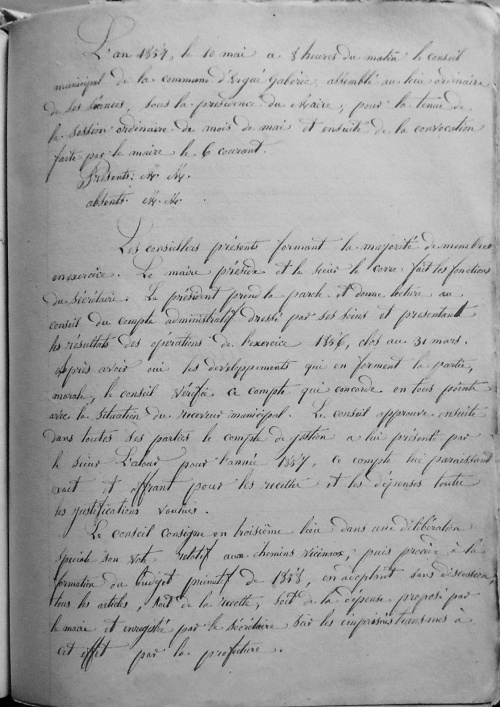 L'an 1857, le 10 mai a 8 heures du matin le conseil
municipal de la commune d'Ergué Gabéric, assemblé au lieu ordinaire
de ses séances, sous la présidence du Maire, pour la tenue de
la session ordinaire de mois de mai et ensuite de la convocation
faite par le maire le 6 courant.
Présents: M. M.
absents M. M.
Les conseillers présents formant la majorité de membres
en exercice. Le maire préside et le sieur le Corre fait les fonctions
du Sécrétaire. Le président prend la parole et donne lecture au
conseil du compte administratif dressé par ses soins et présentant
les résultats des opérations de l'exercice 1856, clos au 31 mars.
Après avoir oui les développements qui en forment la partie
morale, le conseil vérifie ce compte qui concorde en tous points
avec la situation du receveur municipal. Le conseil approuve ensuite
dans toutes ses parties le compte de gestion a lui présenté par
le sieur pour l'année 1857, ce compte lui paraissant
exact et offrant pour les recettes et les dépenses toutes
les justifications voulues.
Le conseil consigne en troisième lieu dans une délibération
spéciale son vote relatif aux chemins vicinaux, puis procède à la
formation du budget primitif de 1858, en adoptant sans discussion
tous les articles, soit de la recette, soit de la dépense proposé par
le maire et enregistrés par le sécrétaire sur les imprimés transmis à
cet effet par la préfecture.